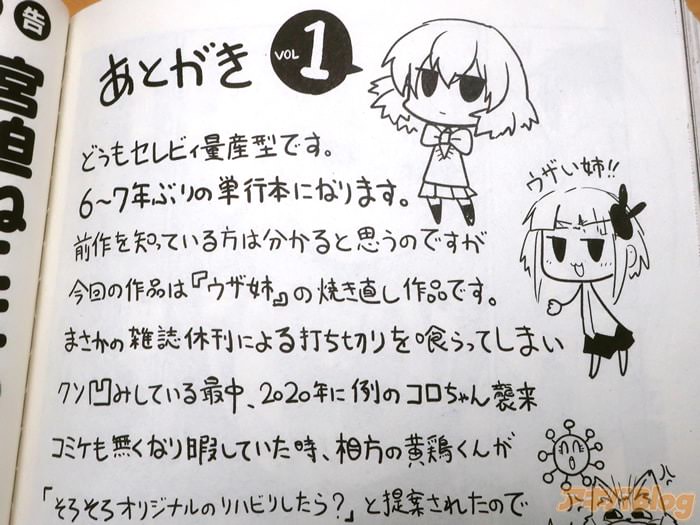 あとがき VOL 1
どうもセレビィ量産型です。
6〜7年ぶりの単行本になります。
ウザい姉!!
前作を知っている方は分かると思うのですが
今回の作品は『ウザ姉』の焼き直し作品です。
まさかの雑誌休刊による打ち切りを喰らってしまい
クソ凹みしている最中、2020年に例のコロちゃん襲来
コミケも無くなり暇していた時、相方の黄鶏くんが
「そろそろオリジナルのリハビリしたら?」と提案されたので
告
宮迫
アキバBlog